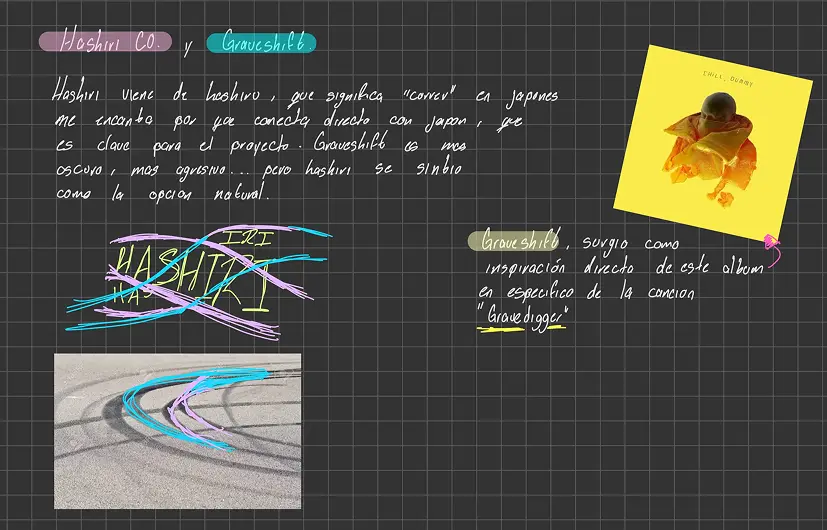 Hashiri CO. y Graveshift.
Hashiri viene de hashiru, que significa "correr" en japones
me encanta por que conecta directo con japon, que
es clave para el proyecto. Graveshift es mas
oscuro, mas agresivo... pero hashiri se sintio
como la opcion natural.
CHILL, DUMMY
IRI
HASHIRI
HAS
Graveshift, surgio como
inspiración directo de este album
en especifico de la cancion
"Gravedigger"